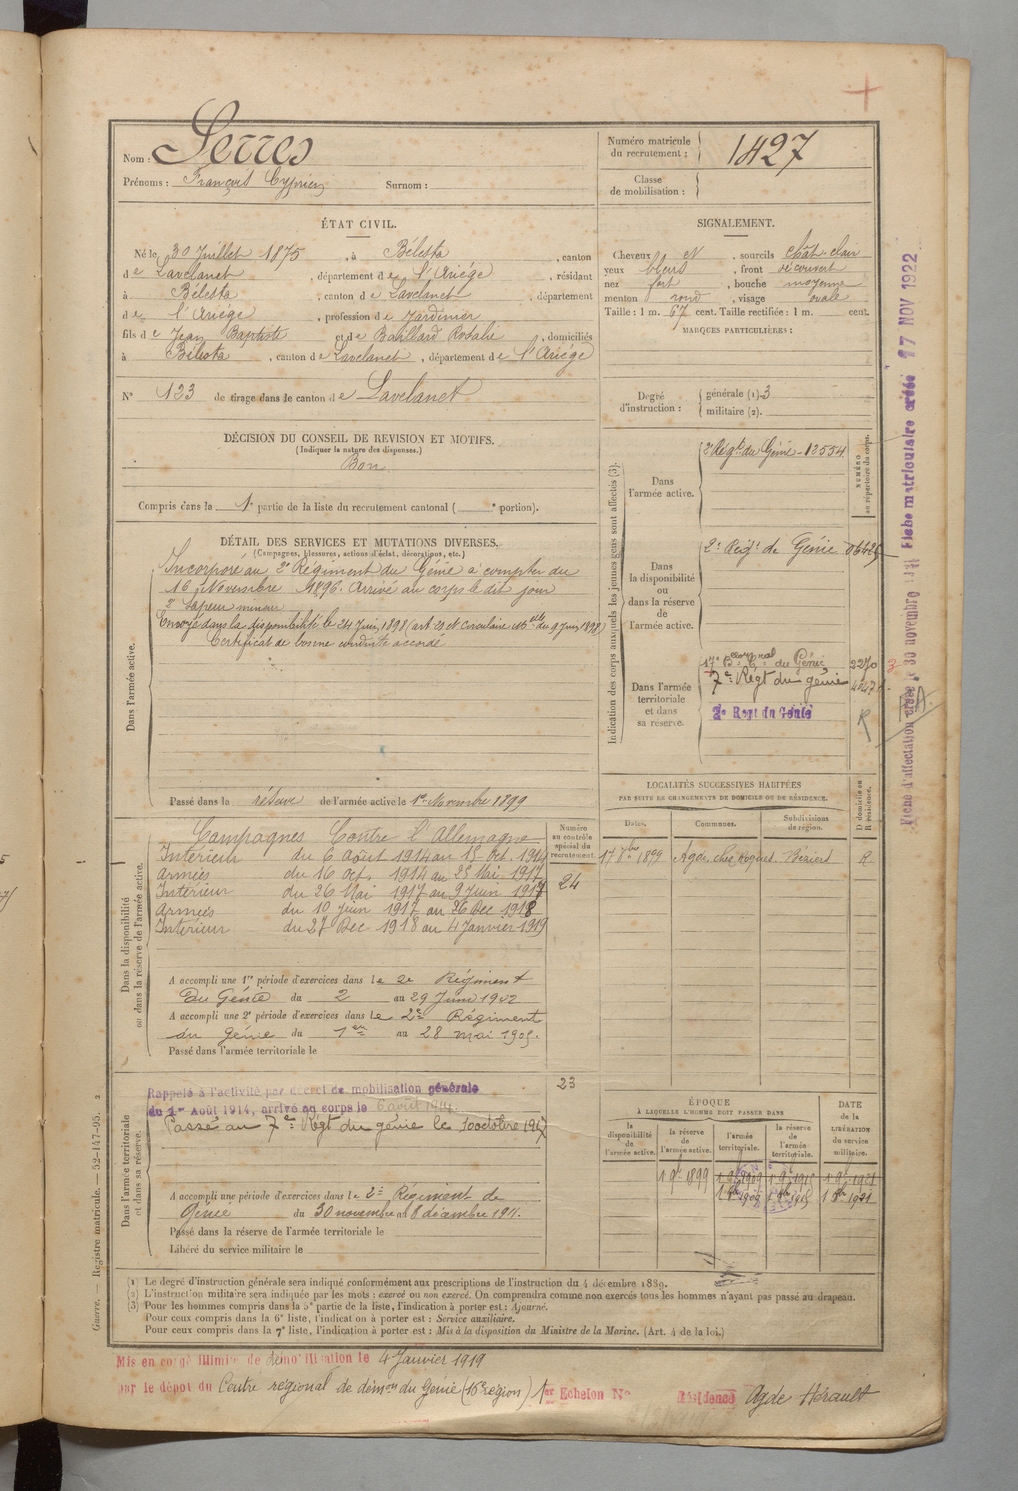 Nom : Serres
Prénoms : François Cyprien Surnom :
Numéro matricule du recrutement : 1427
Classe de mobilisation :
ÉTAT CIVIL.
Né le 30 Juillet 1875, à Bélesta, canton
de Lavelanet, département de l'Ariége, résidant
à Bélesta, canton de Lavelanet, département
de l'Ariége, profession de Jardinier
fils de Jean Baptiste et de Babillard Rosalie, domiciliés
à Bélesta, canton de Lavelanet, département de l'Ariége
N° 123 de tirage dans le canton de Lavelanet
DÉCISION DU CONSEIL DE REVISION ET MOTIFS.
(Indiquer la nature des dispenses.)
Bon
Compris dans la 1e partie de la liste du recrutement cantonal ( e portion).
SIGNALEMENT.
Cheveux et, sourcils chât-clair
yeux bleus, front découvert
nez fort, bouche moyenne
menton rond, visage ovale
Taille : 1 m. 67 cent. Taille rectifiée : 1 m. cent.
MARQUES PARTICULIÈRES :
Degré d'instruction :
générale (1). 3
militaire (2).
DÉTAIL DES SERVICES ET MUTATIONS DIVERSES.
(Campagnes, blessures, actions d'éclat, décorations, etc.)
Dans l'armée active.
Incorporé au 2e Régiment du Génie à compter du
16 Novembre 1896. Arrivé au corps le dit jour
2e Sapeur mineur
Envoyé dans la disponibilité le 24 Juin 1898 (art 21 et Circulaire Mlle du 9 Juin 1898)
Certificat de bonne conduite accordé
Passé dans la réserve de l'armée active le 1er Novembre 1899
Indication des corps auxquels les jeunes gens sont affectés (3).
NUMÉRO au répertoire du corps.
Dans l'armée active.
2e Régt du Génie - 12554
Dans la disponibilité ou dans la réserve de l'armée active.
2e Régt de Génie 06425
Dans l'armée territoriale et dans sa réserve.
17e Bon Cal du Génie 2270
7e Régt du génie
2e Regt du Génie
R
LOCALITÉS SUCCESSIVES HABITÉES
PAR SUITE DE CHANGEMENTS DE DOMICILE OU DE RÉSIDENCE.
Dates. Communes. Subdivisions de région. D domicile ou R résidence.
17 7bre 1899 Agde, chez Béziers R
Dans la disponibilité ou dans la réserve de l'armée active.
Numéro au contrôle spécial du recrutement.
24
Campagnes Contre l'Allemagne
Intérieur du 6 Août 1914 au 15 Oct. 1914
Armées du 16 Oct. 1914 au 25 Mai 1917
Intérieur du 26 Mai 1917 au 9 Juin 1917
Armées du 10 Juin 1917 au 26 Dec 1918
Intérieur du 27 Dec 1918 au 4 Janvier 1919
A accompli une 1re période d'exercices dans le 2e Régiment
du Génie du 2 au 29 Juin 1902
A accompli une 2e période d'exercices dans le 2e Régiment
du génie du 1er au 28 mai 1905.
Passé dans l'armée territoriale le
Dans l'armée territoriale et dans sa réserve.
23
Rappelé à l'activité par décret de mobilisation générale
du 1er Août 1914, arrivé au corps le 6 août 1914.
Passé au 7e Régt du génie le 10 octobre 1917
A accompli une période d'exercices dans le 2e Régiment de
Génie du 30 novembre au 8 décembre 1911.
Passé dans la réserve de l'armée territoriale le
Libéré du service militaire le
ÉPOQUE
À LAQUELLE L'HOMME DOIT PASSER DANS
la disponibilité de l'armée active.
la réserve de l'armée active.
l'armée territoriale.
la réserve de l'armée territoriale.
DATE de la LIBÉRATION du service militaire.
1 9bre 1899 1 9bre 1909 1 9bre 1915 1 9bre 1921
1 8bre 1909 1 8bre 1915 1 8bre 1921
(1) Le degré d'instruction générale sera indiqué conformément aux prescriptions de l'instruction du 4 décembre 1889.
(2) L'instruction militaire sera indiquée par les mots : exercé ou non exercé. On comprendra comme non exercés tous les hommes n'ayant pas passé au drapeau.
(3) Pour les hommes compris dans la 5e partie de la liste, l'indication à porter est : Ajourné.
Pour ceux compris dans la 6e liste, l'indication à porter est : Service auxiliaire.
Pour ceux compris dans la 7e liste, l'indication à porter est : Mis à la disposition du Ministre de la Marine. (Art. 4 de la loi.)
Mis en congé illimité de démobilisation le 4 Janvier 1919
par le dépôt du Centre régional de démon du Génie (16e région) 1er Echelon No Résidence Agde Hérault
Guerre. — Registre matricule. — 52-147-95. 2
Fiche matriculaire créée 17 NOV 1922
Fiche d'affectation créée le 30 novembre